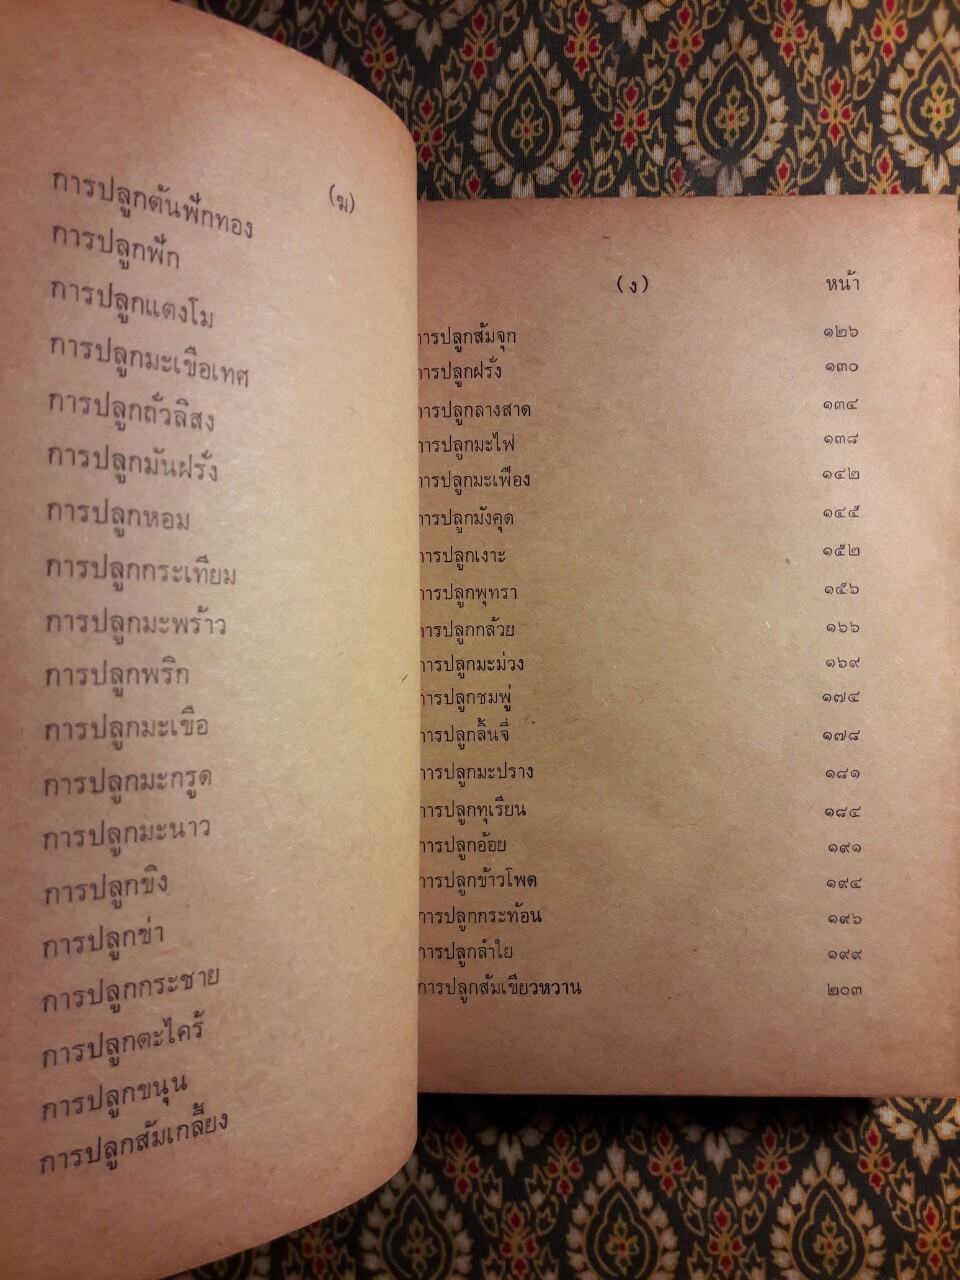 (ฆ)
การปลูกต้นฟักทอง
การปลูกฟัก
การปลูกแตงโม
การปลูกมะเขือเทศ
การปลูกถั่วลิสง
การปลูกมันฝรั่ง
การปลูกหอม
การปลูกกระเทียม
การปลูกมะพร้าว
การปลูกพริก
การปลูกมะเขือ
การปลูกมะกรูด
การปลูกมะนาว
การปลูกขิง
การปลูกข่า
การปลูกกระชาย
การปลูกตะไคร้
การปลูกขนุน
การปลูกส้มเกลี้ยง
(ง) หน้า
การปลูกส้มจุก ๑๒๖
การปลูกฝรั่ง ๑๓๐
การปลูกลางสาด ๑๓๔
การปลูกมะไฟ ๑๓๘
การปลูกมะเฟือง ๑๔๒
การปลูกมังคุด ๑๔๕
การปลูกเงาะ ๑๕๒
การปลูกพุทรา ๑๕๖
การปลูกกล้วย ๑๖๖
การปลูกมะม่วง ๑๖๙
การปลูกชมพู่ ๑๗๔
การปลูกลิ้นจี่ ๑๗๘
การปลูกมะปราง ๑๘๑
การปลูกทุเรียน ๑๘๔
การปลูกอ้อย ๑๙๑
การปลูกข้าวโพด ๑๙๔
การปลูกกระท้อน ๑๙๖
การปลูกลำใย ๑๙๙
การปลูกส้มเขียวหวาน ๒๐๓